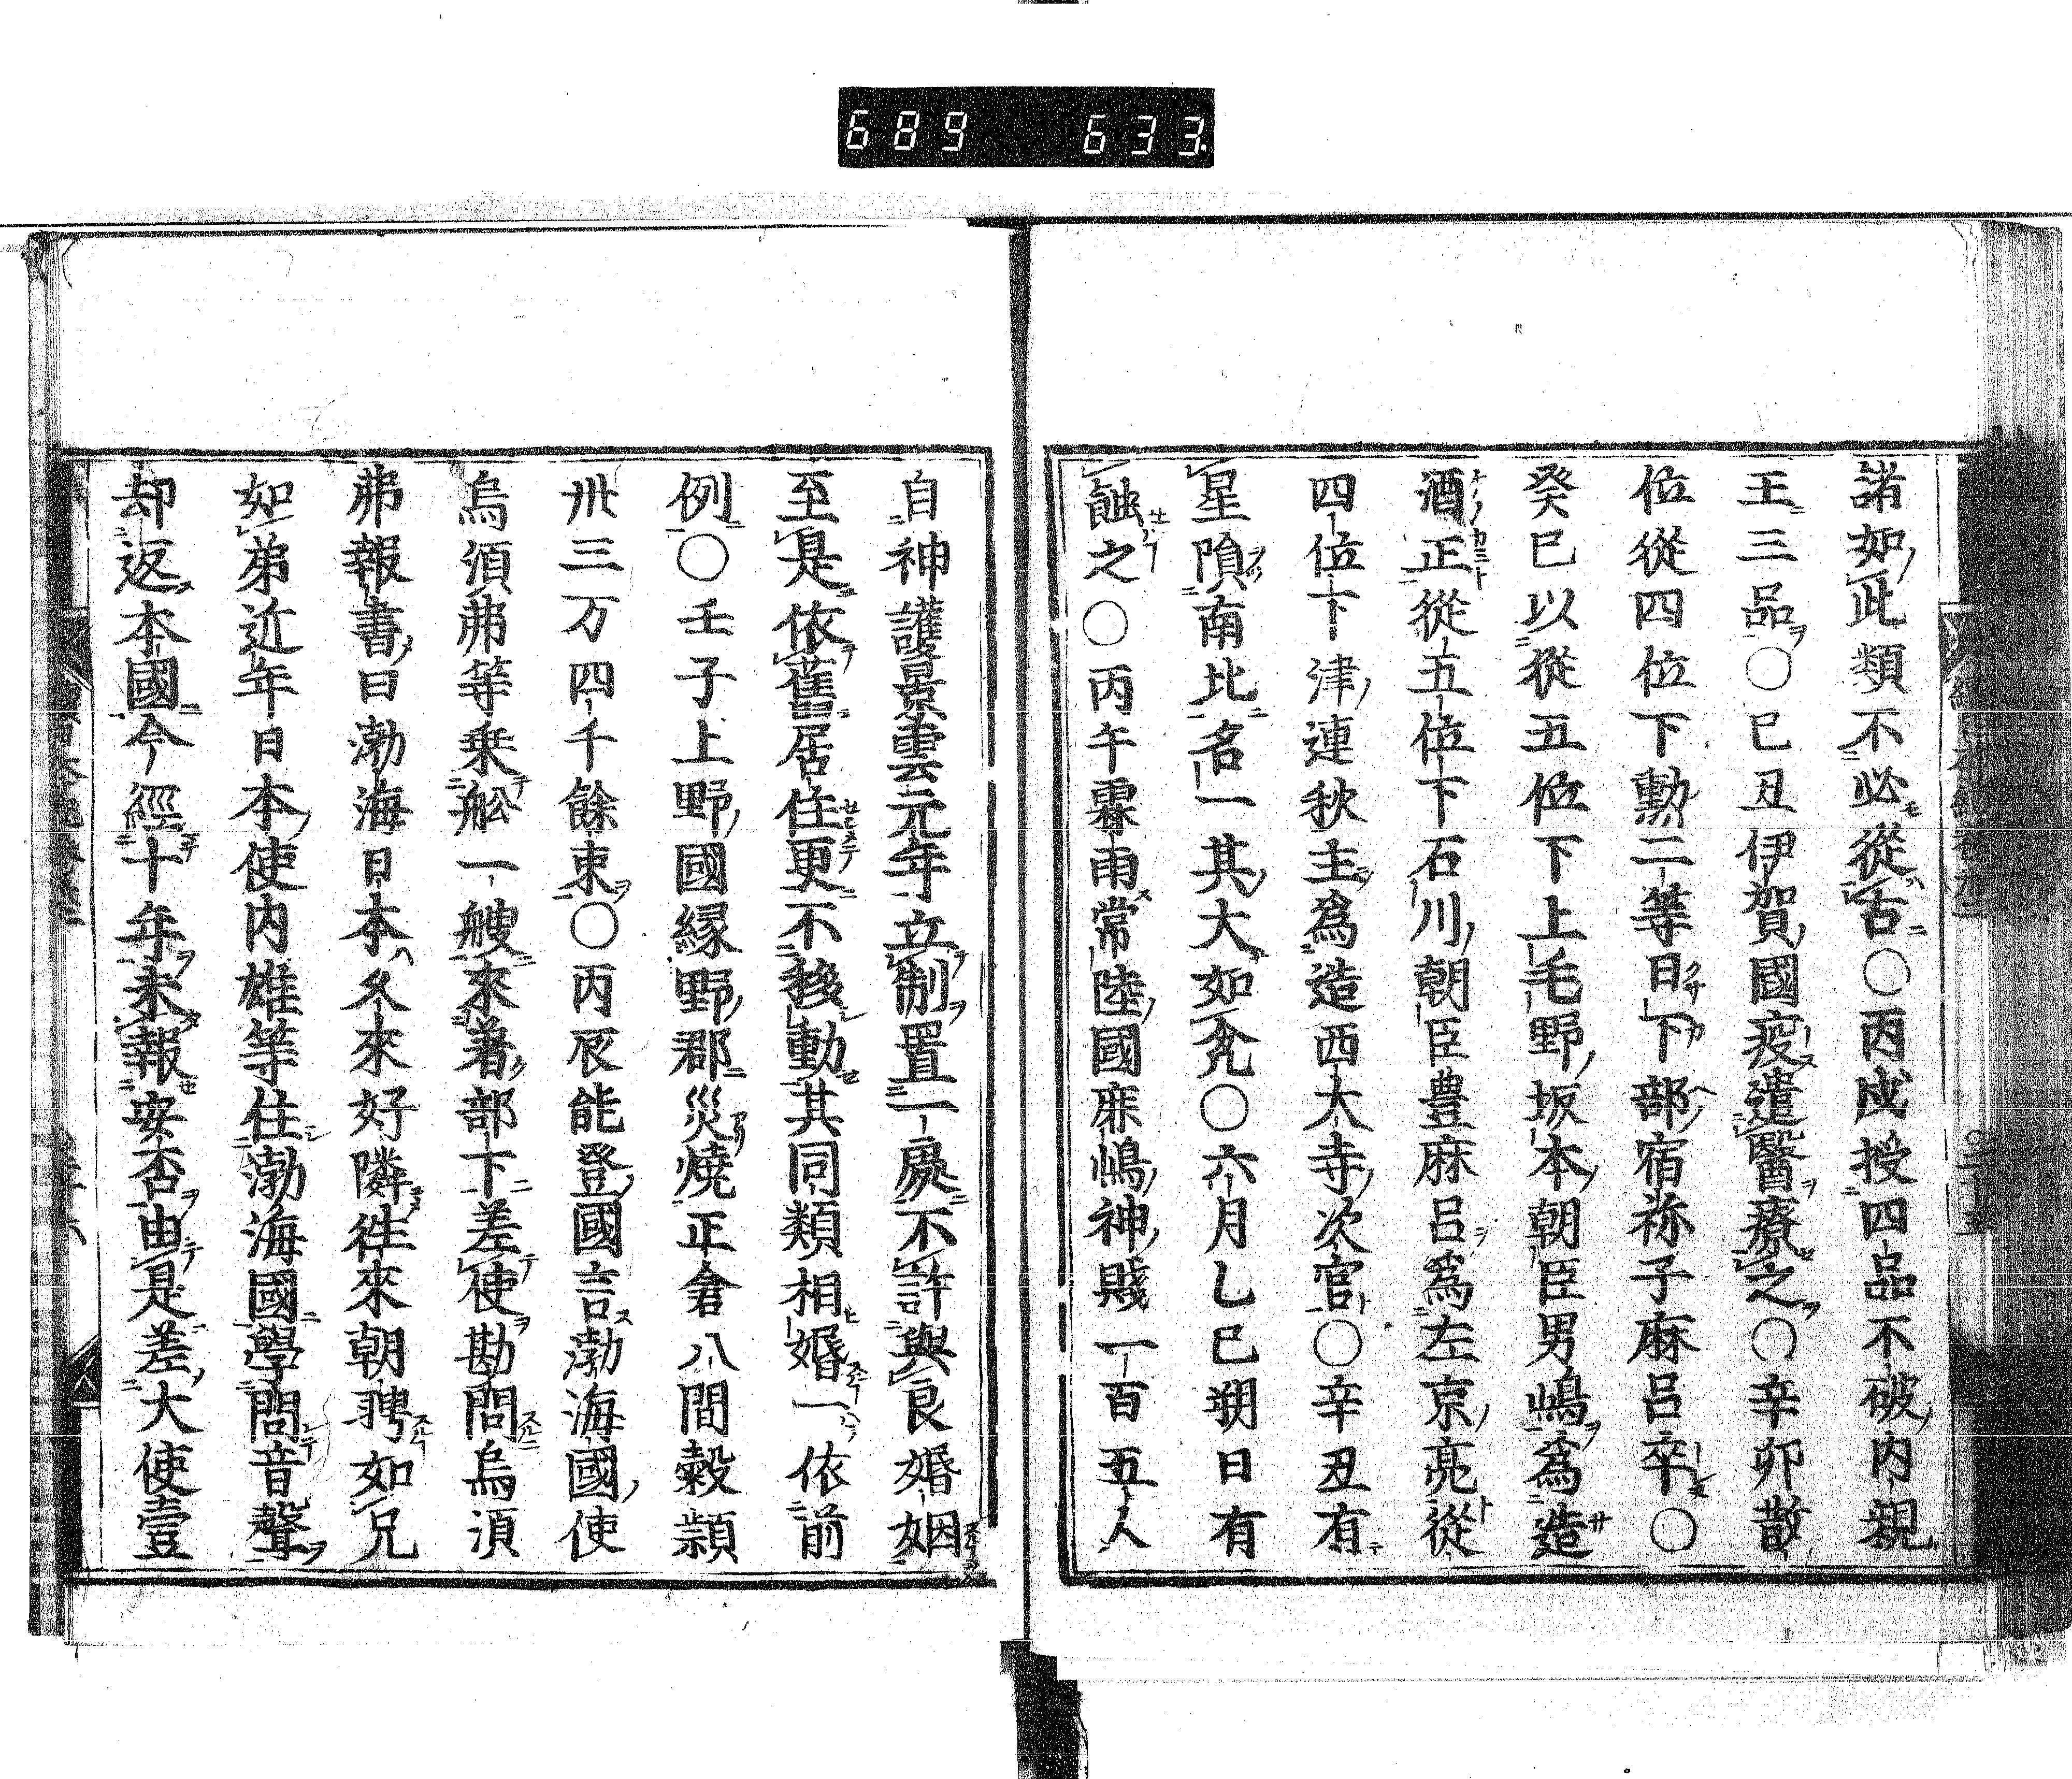 689 633
諸如此類不必從古〇丙戌授四品不破内親
王三品〇巳丑伊賀國疫遣醫療之〇辛卯散
位從四位下勳二等日下部宿祢子麻呂卒〇
癸巳以從五位下上毛野坂本朝臣男嶋爲造
酒正從五位下石川朝臣豊麻呂爲左京亮從
四位下津連秋主爲造西大寺次官〇辛丑有
星隕南北名一其大如瓮〇六月乙巳朔日有
蝕之〇丙午霖雨常陸國鹿嶋神賤一百五人
自神護景雲元年立制置一處不許與良婚姻
至是依舊居住更不移動其同類相婚一依前
例〇壬子上野國緑野郡災燒正倉八間穀頴
卅三万四千餘束〇丙辰能登國言渤海國使
烏須弗等乗舩一艘來著部下差使勘問烏須
弗報書曰渤海日本久來好隣徃來朝聘如兄
如弟近年日本使内雄等住渤海國學問音聲
却返本國今經十年未報安否由是差大使壹